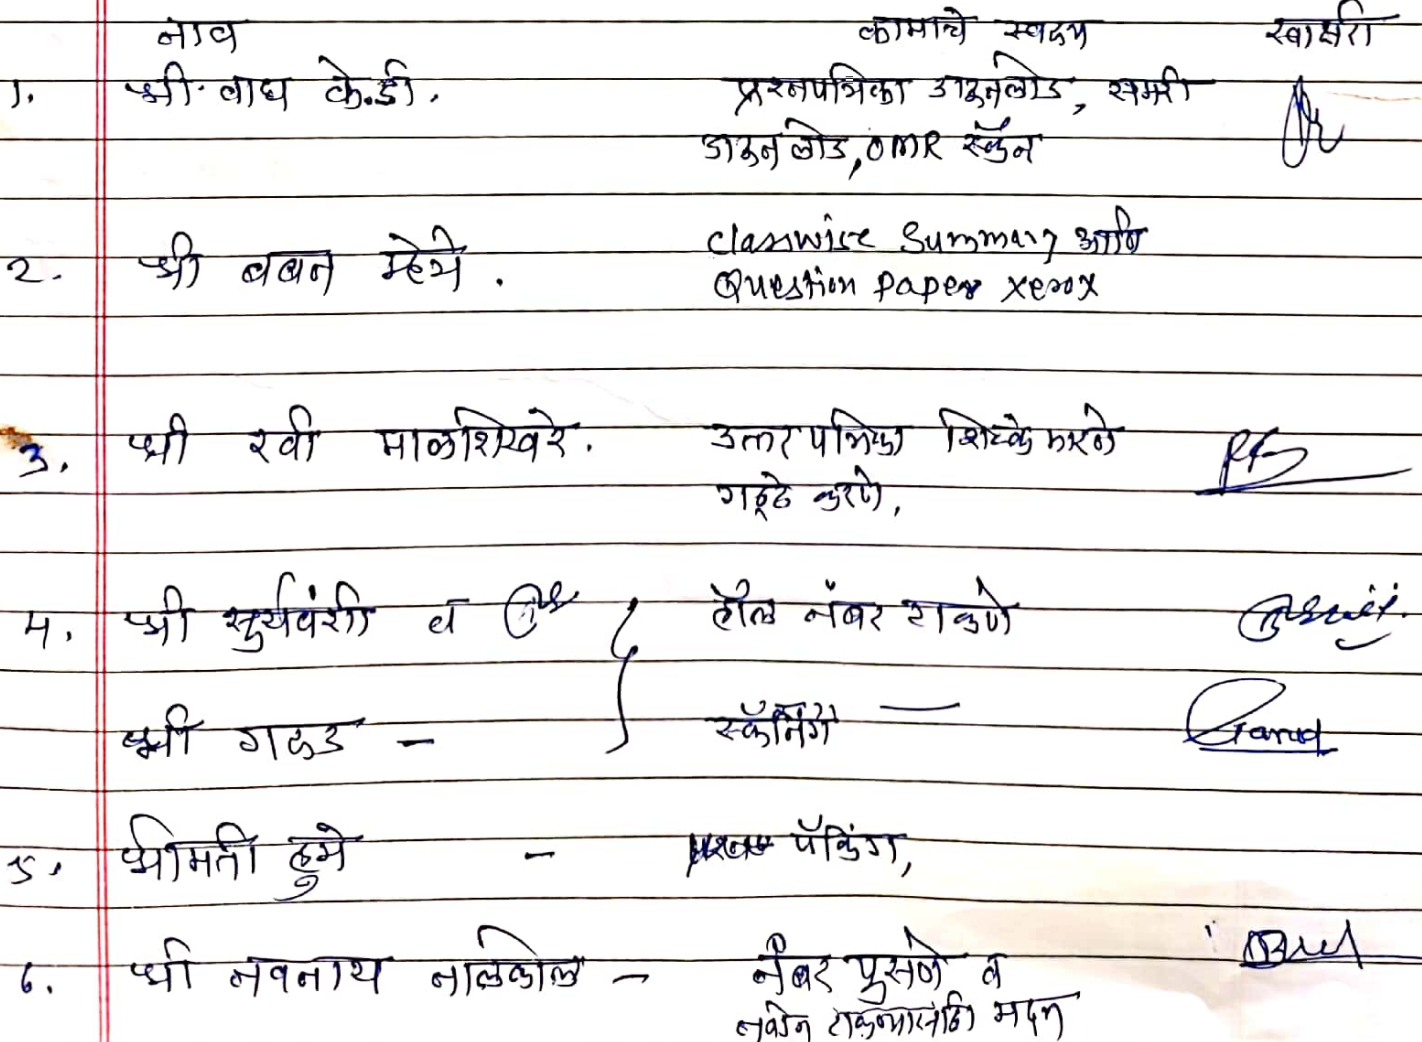 नाव कामाचे स्वरूप स्वाक्षरी
1. श्री. वाघ के.डी. प्रश्नपत्रिका डाऊनलोड, समरी
डाऊनलोड, OMR स्कॅन
2. श्री बबन म्हेत्रे. Classwise Summary आणि
Question paper xerox
3. श्री रवी माळशिखरे. उत्तरपत्रिका शिक्के मारणे
गठ्ठे करणे,
4. श्री सुर्यवंशी व हॉल नंबर टाकणे
श्री गरुड - स्कॅनिंग —
5. श्रीमती ढुमे - पॅकिंग,
6. श्री नवनाथ नालकोल - नंबर पुसणे व
नवीन टाकण्यासाठी मदत